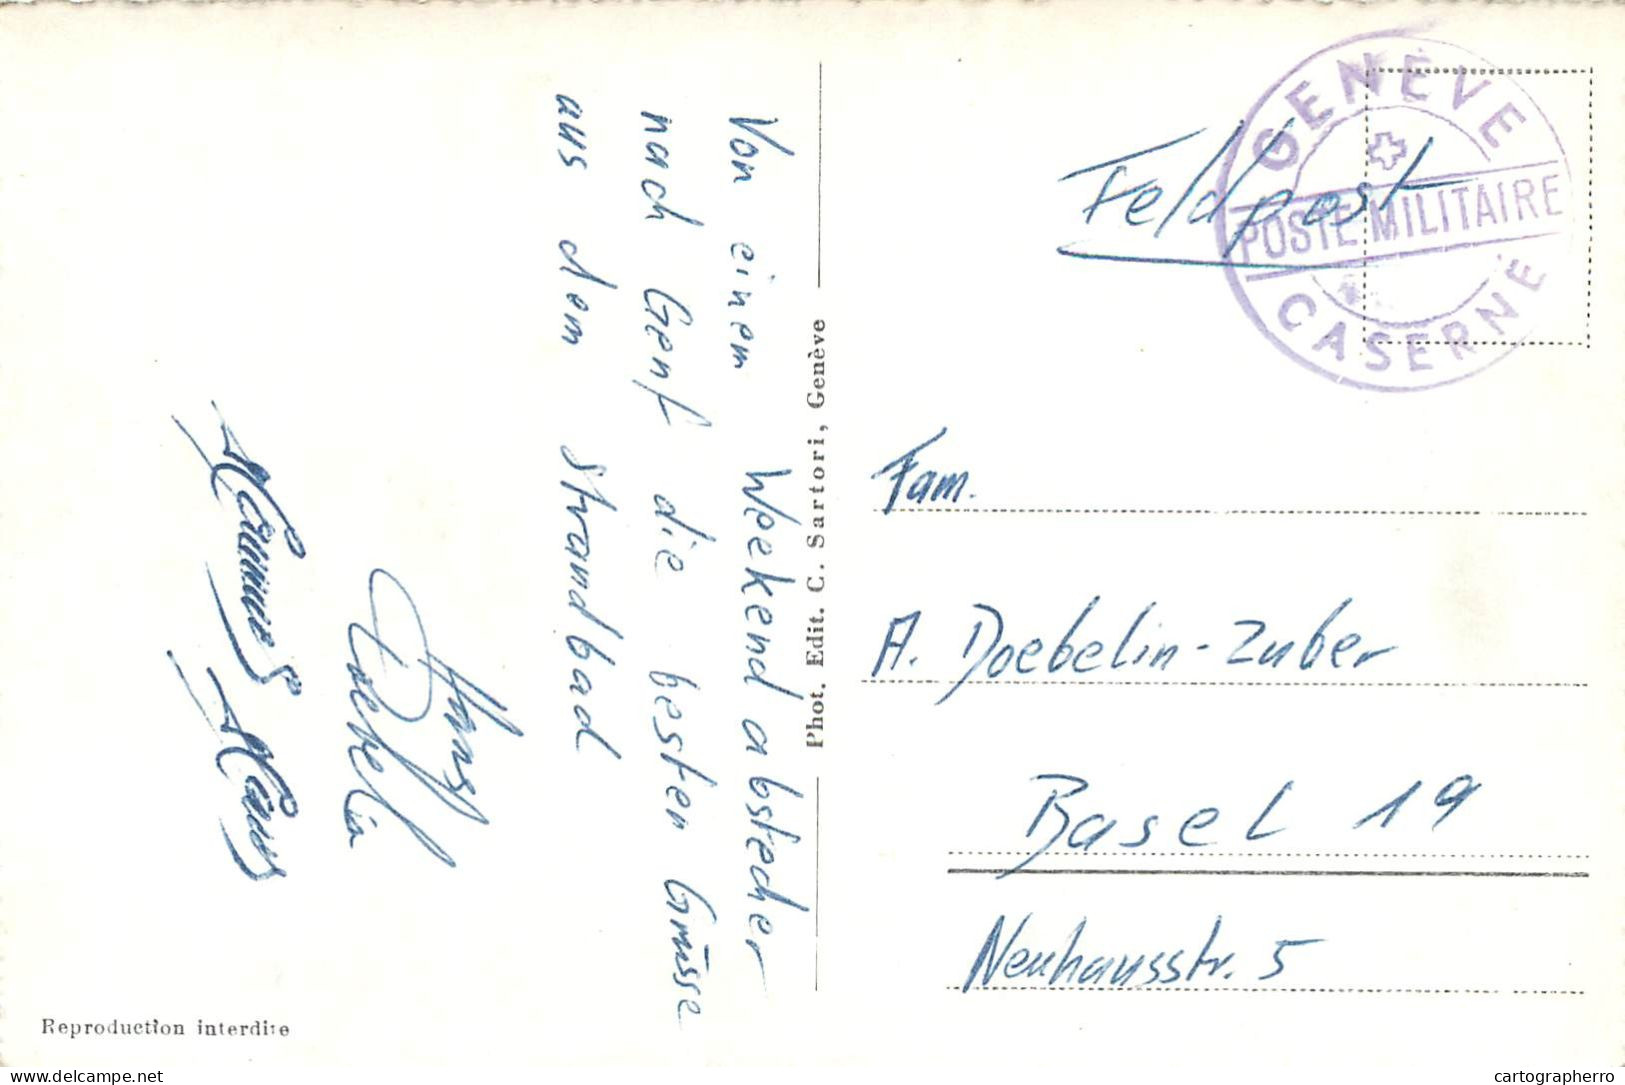 Von einem Weekendabstecher
nach Genf die besten Grüsse
aus dem Strandbad
Hans
Doebelin
Phot. Edit. C. Sartori, Genève
Reproduction interdite
GENÈVE
POSTE MILITAIRE
CASERNE
Feldpost
Fam.
A. Doebelin-Zuber
Basel 19
Neuhausstr. 5
delcampe.net
cartographerro